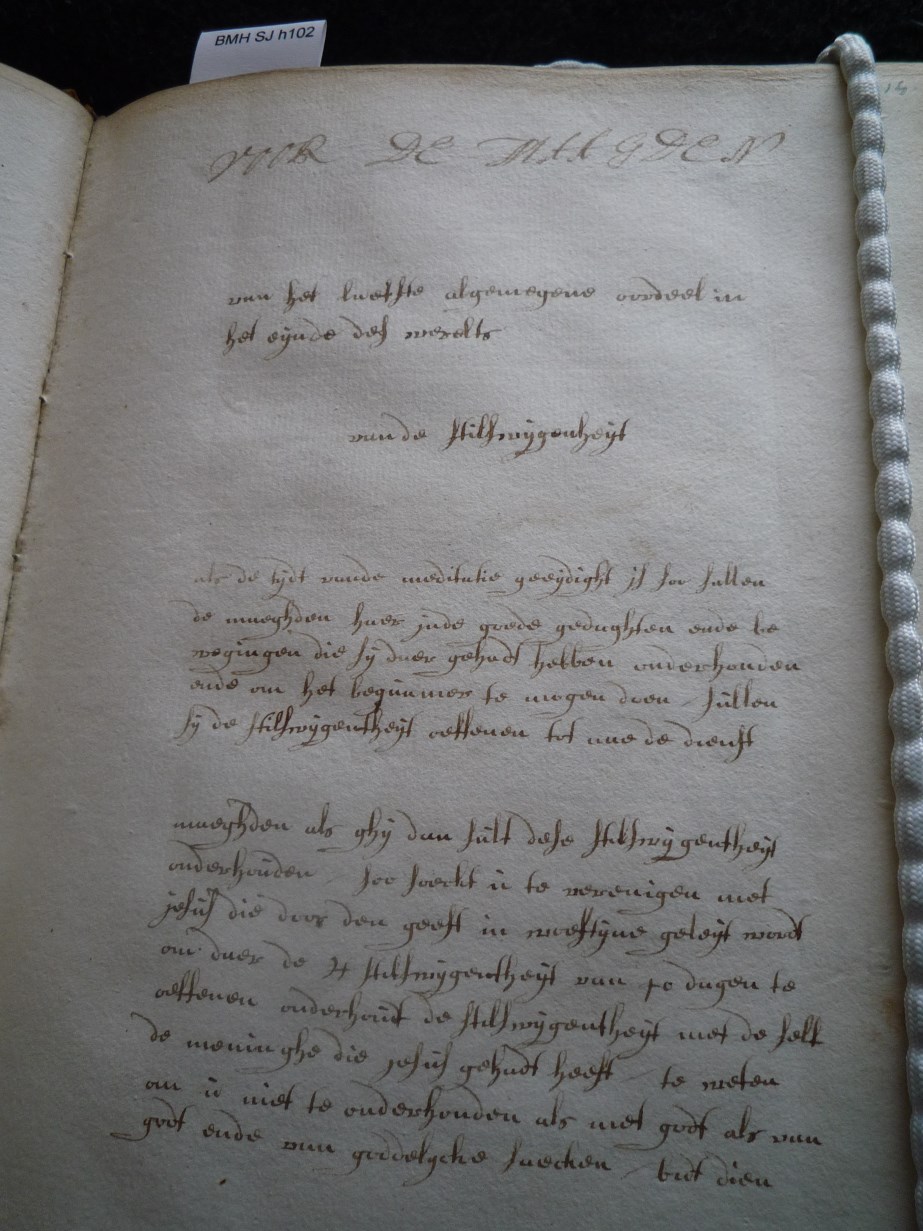 BMH SJ h102
14
VOOR DE MAAGDEN
van het laetste algemeyene oordeel in
het eynde des werelts
vande stilswygenheyt
als de tydt vande meditatie geeydight is soo sullen
de maeghden haer inde goede gedaghten ende be
wegingen die sy daer gehadt hebben onderhouden
ende om het bequamer te mogen doen sullen
sy de stilswygentheyt oeffenen tot nae de dienst
maeghden als ghy dan sult dese stilswygentheyt
onderhouden soo soeckt u te verenigen met
jesus die door den geest in woestyne geleyt wordt
om daer de stilswygentheyt van 40 dagen te
oeffenen onderhout de stilswygentheyt met de self
de meninghe die jesus gehadt heeft te weten
om u niet te onderhouden als met godt als van
godt ende van goddelycke saecken bidt dien